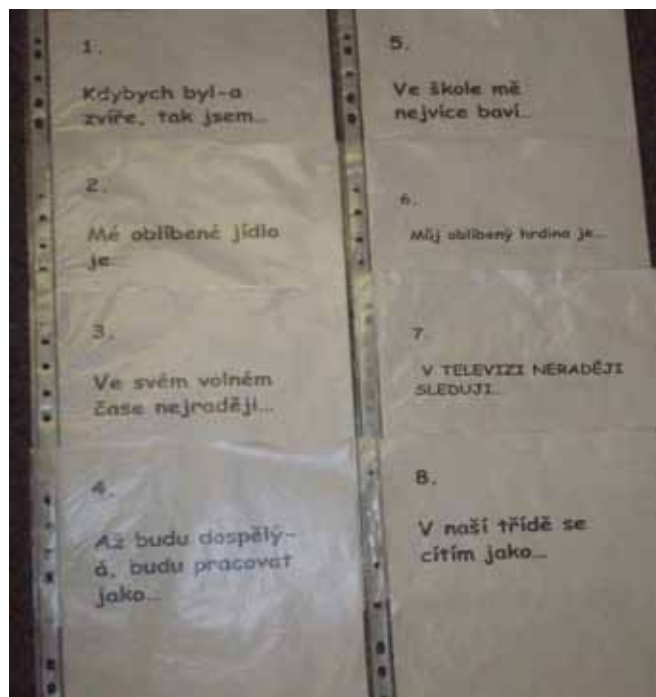 1.
Kdybych byl-a
zvíře, tak jsem...
2.
Mé oblíbené jídlo
je...
3.
Ve svém volném
čase nejraději...
4.
Až budu dospělý-
á, budu pracovat
jako...
5.
Ve škole mě
nejvíce baví...
6.
Můj oblíbený hrdina je...
7.
V TELEVIZI NERADĚJI
SLEDUJI...
8.
V naší třídě se
cítím jako...